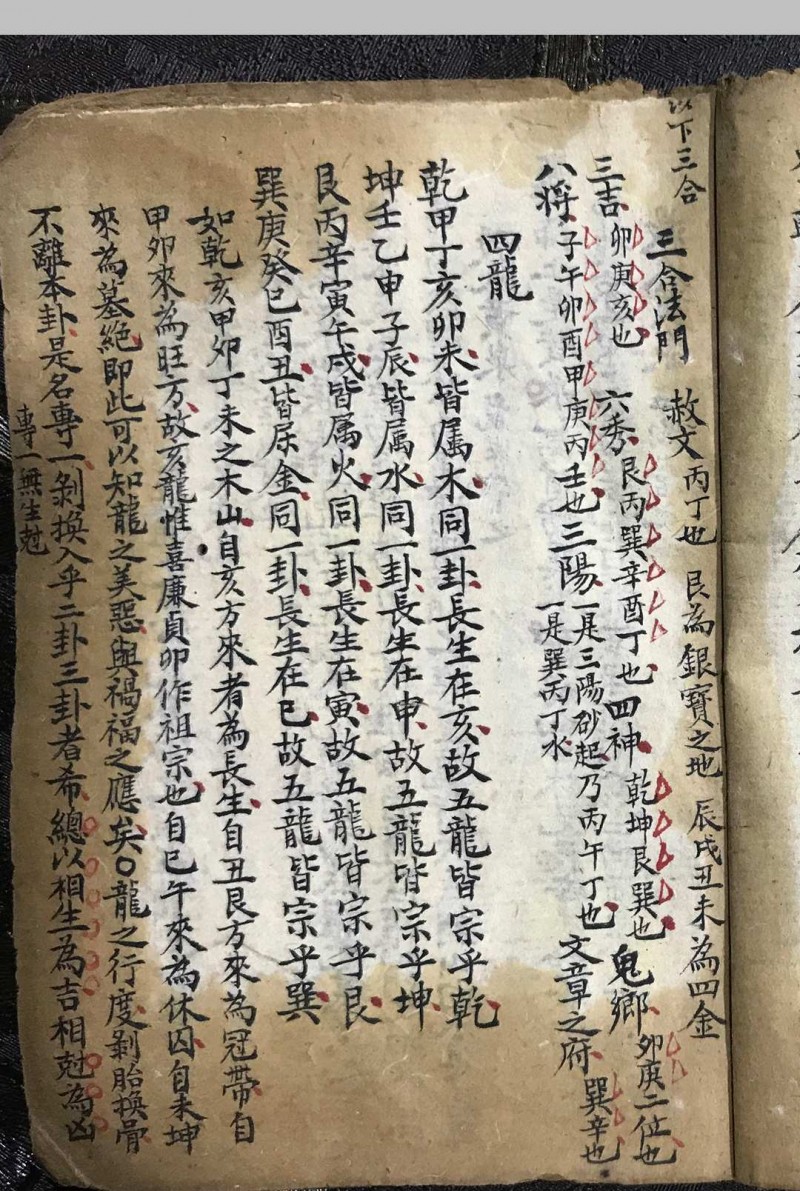 以下三合
三合法門 赦文 丙丁也 艮為銀寶之地 辰戌丑未為四金
三吉 卯庚亥也 六秀 艮丙巽辛酉丁也 四神 乾坤艮巽也 鬼鄉 卯庚二位也
八將 子午卯酉甲庚丙壬也 三陽 一是三陽砂起乃丙午丁也 一是巽丙丁水 文章之府 巽辛也
四龍
乾甲丁亥卯未皆属木同一卦長生在亥故五龍皆宗乎乾
坤壬乙申子辰皆属水同一卦長生在申故五龍皆宗乎坤
艮丙辛寅午戌皆属火同一卦長生在寅故五龍皆宗乎艮
巽庚癸巳酉丑皆属金同一卦長生在巳故五龍皆宗乎巽
如乾亥甲卯丁未之木山自亥方來者為長生自丑艮方來為冠帶自
甲卯來為旺方故亥龍惟喜廉貞卯作祖宗也自巳午來為休囚自未坤
來為墓絕即此可以知龍之美惡與禍福之應矣〇龍之行度剝胎換骨
不離本卦是名專一剝換入乎二卦三卦者希總以相生為吉相尅為凶
專一無生尅